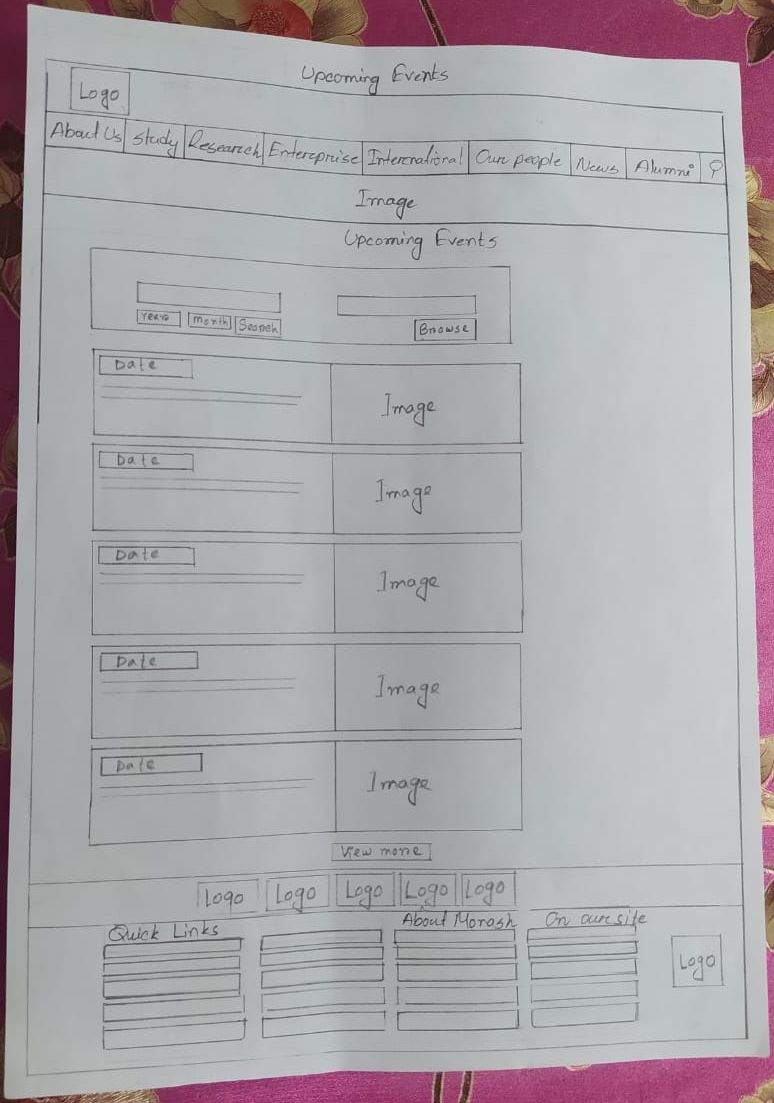 Upcoming Events
Logo
About Us Study Research Enterprise International Our people News Alumni
Image
Upcoming Events
Years Month Search Browse
Date
Image
Date
Image
Date
Image
Date
Image
Date
Image
View more
Logo Logo Logo Logo Logo
Quick Links About Morash On our site
Logo